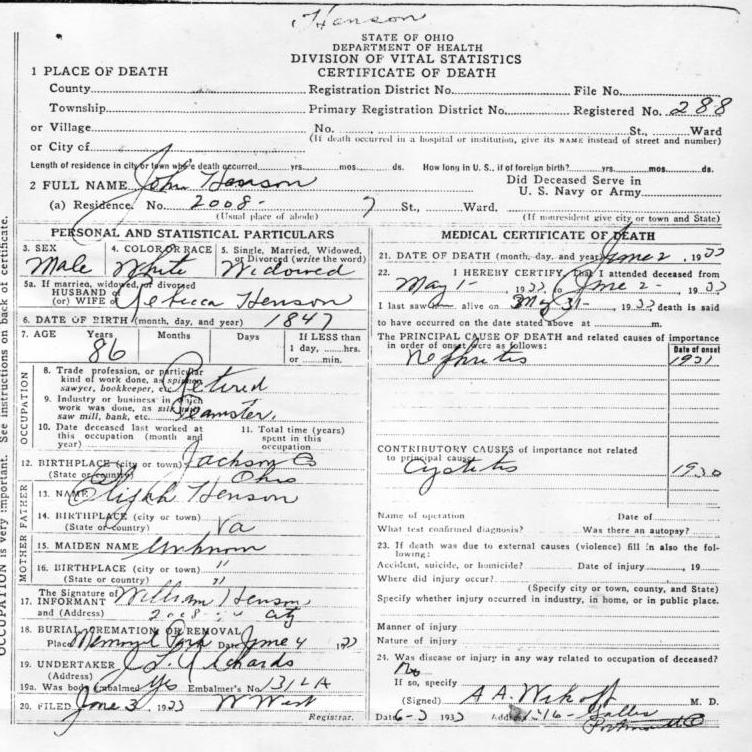 Henson
STATE OF OHIO
DEPARTMENT OF HEALTH
DIVISION OF VITAL STATISTICS
CERTIFICATE OF DEATH
1 PLACE OF DEATH
County
Registration District No.
File No.
Township
Primary Registration District No.
Registered No. 288
or Village
No.
St., Ward
(If death occurred in a hospital or institution, give its NAME instead of street and number)
or City of
Length of residence in city or town where death occurred yrs. mos. ds. How long in U. S., if of foreign birth? yrs. mos. ds.
2 FULL NAME John Henson
Did Deceased Serve in
U. S. Navy or Army
(a) Residence. No. 2008 - 7 St., Ward.
(Usual place of abode)
(If nonresident give city or town and State)
PERSONAL AND STATISTICAL PARTICULARS
3. SEX
Male
4. COLOR OR RACE
White
5. Single, Married, Widowed,
or Divorced (write the word)
Widowed
5a. If married, widowed, or divorced
HUSBAND of
(or) WIFE of Rebecca Henson
6. DATE OF BIRTH (month, day, and year) 1847
7. AGE Years Months Days If LESS than
1 day, hrs.
or min.
86
OCCUPATION
8. Trade, profession, or particular
kind of work done, as spinner,
sawyer, bookkeeper, etc. Retired
9. Industry or business in which
work was done, as silk mill,
saw mill, bank, etc. Teamster.
10. Date deceased last worked at
this occupation (month and
year)
11. Total time (years)
spent in this
occupation
12. BIRTHPLACE (city or town) Jackson Co
(State or country) Ohio
FATHER
13. NAME Elijah Henson
14. BIRTHPLACE (city or town)
(State or country) Va
MOTHER
15. MAIDEN NAME Unknown
16. BIRTHPLACE (city or town) "
(State or country) "
17. The Signature of
INFORMANT William Henson
and (Address) 2008 City
18. BURIAL, CREMATION OR REMOVAL
Place Memorial Park Date June 4 1933
19. UNDERTAKER J. L. Richards
(Address)
19a. Was body embalmed Yes Embalmer's No. 131LA
20. FILED June 3, 1933 W West
Registrar.
MEDICAL CERTIFICATE OF DEATH
21. DATE OF DEATH (month, day, and year) June 2, 1933
22. I HEREBY CERTIFY, That I attended deceased from
May 1 - 1933, to June 2 -, 1933
I last saw alive on May 31 -, 1933, death is said
to have occurred on the date stated above at m.
The PRINCIPAL CAUSE OF DEATH and related causes of importance
in order of onset were as follows:
Date of onset
Nephritis 1931
CONTRIBUTORY CAUSES of importance not related
to principal cause:
Cystitis 1930
Name of operation Date of
What test confirmed diagnosis? Was there an autopsy?
23. If death was due to external causes (violence) fill in also the fol-
lowing:
Accident, suicide, or homicide? Date of injury, 19
Where did injury occur?
(Specify city or town, county, and State)
Specify whether injury occurred in industry, in home, or in public place.
Manner of injury
Nature of injury
24. Was disease or injury in any way related to occupation of deceased?
No
If so, specify
(Signed) A A M. D.
Date 6-3 1933 Address 16- Gallia
Portsmouth O
OCCUPATION is very important. See instructions on back of certificate.